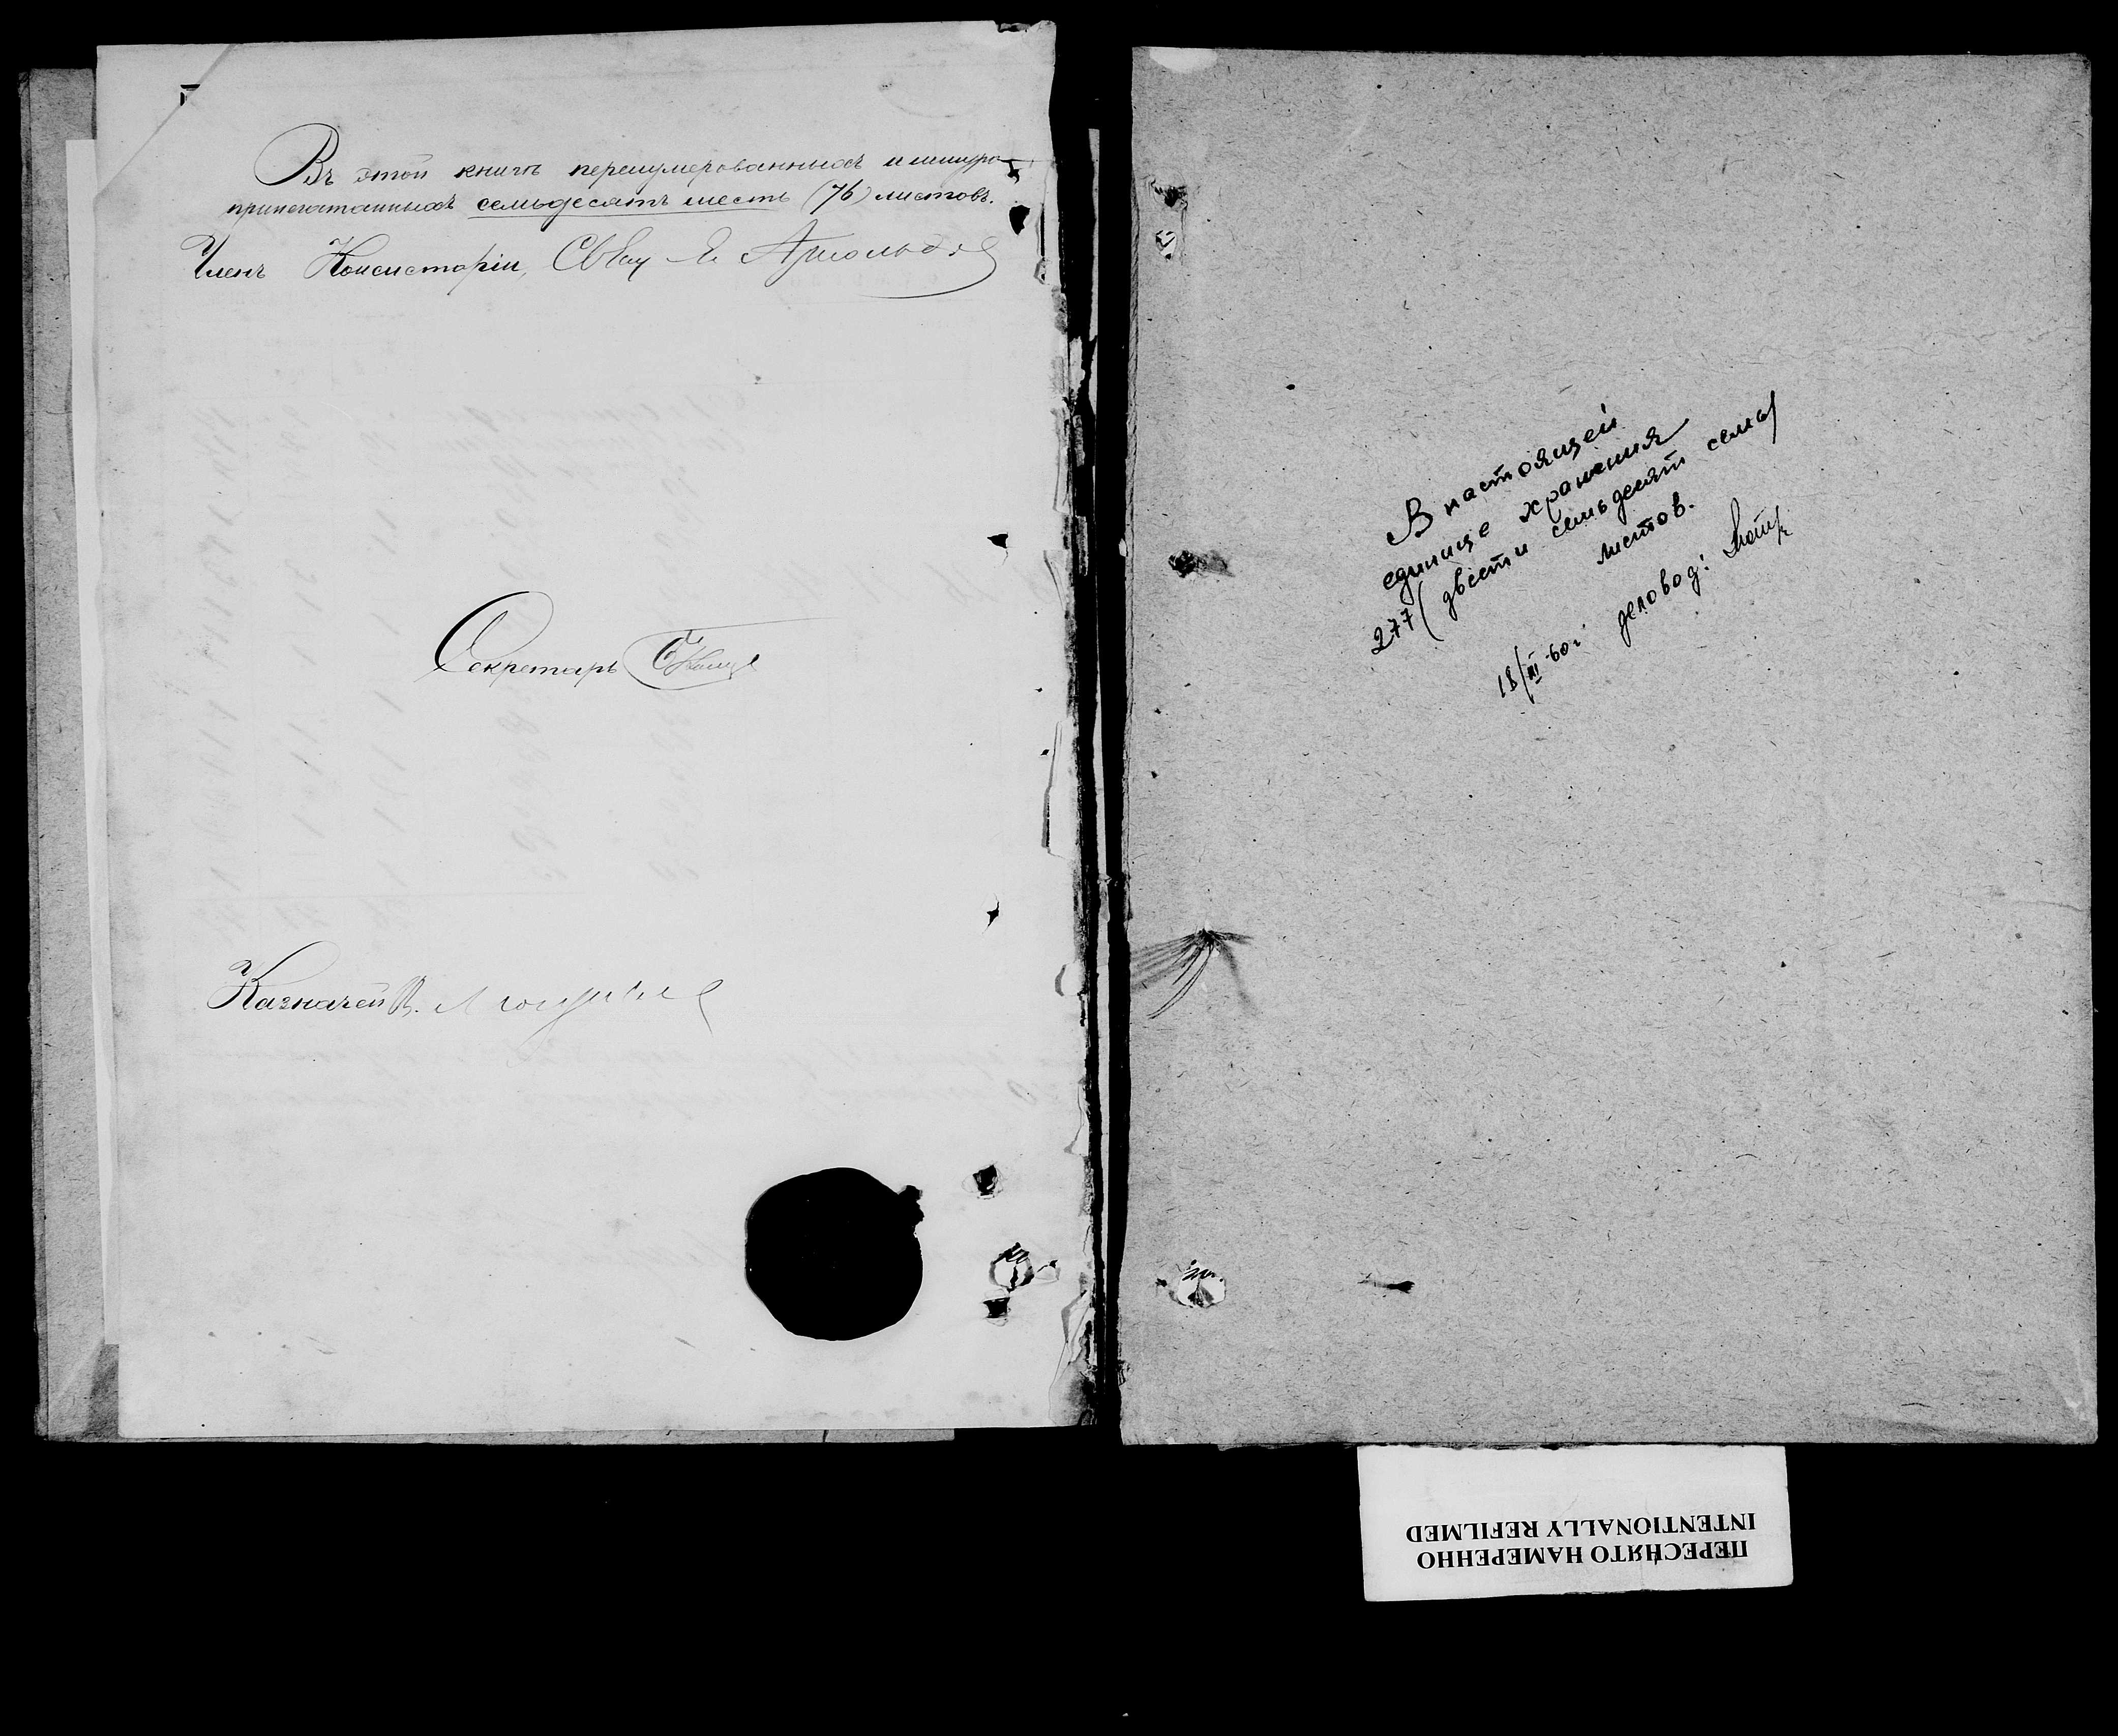 Въ этой книгѣ перенумерованныхъ и шнуро-
припечатанныхъ семьдесятъ шесть (76) листовъ.
Членъ Консисторіи, Свящ
Секретарь
Казначей
В настоящей
единице хранения
277 (двести семьдесят семь)
листов.
18/III-60г деловод:
ПЕРЕСНЯТО НАМЕРЕННО
INTENTIONALLY REFILMED